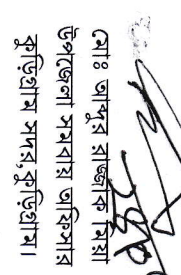 মোঃ আব্দুর রাজ্জাক মিয়া
উপজেলা সমবায় অফিসার
কুড়িগ্রাম সদর, কুড়িগ্রাম।